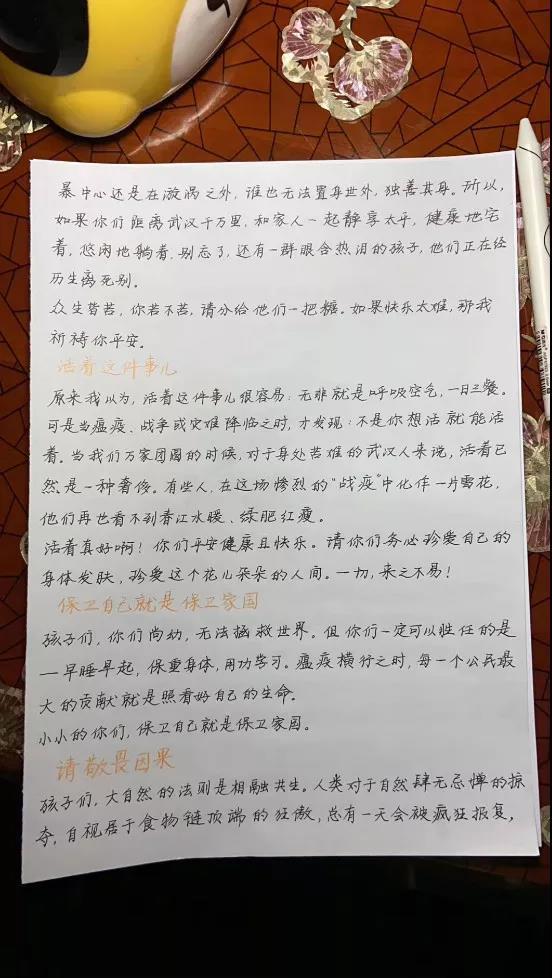 暴中心还是在漩涡之外，谁也无法置身世外，独善其身。所以，
如果你们距离武汉千万里，和家人一起静享太平，健康地宅
着，悠闲地躺着，别忘了，还有一群眼含热泪的孩子，他们正在经
历生离死别。
众生皆苦，你若不苦，请分给他们一把糖。如果快乐太难，那我
祈祷你平安。
活着这件事儿
原来我以为，活着这件事儿很容易：无非就是呼吸空气，一日三餐。
可是当瘟疫、战争或灾难降临之时，才发现：不是你想活就能活
着。当我们万家团圆的时候，对于身处苦难的武汉人来说，活着已
然是一种奢侈。有些人，在这场惨烈的“战疫”中化作一片雪花，
他们再也看不到春江水暖、绿肥红瘦。
活着真好啊！你们平安健康且快乐。请你们务必珍爱自己的
身体发肤，珍爱这个花儿朵朵的人间。一切，来之不易！
保卫自己就是保卫家园
孩子们，你们尚幼，无法拯救世界。但你们一定可以胜任的是
—早睡早起，保重身体，用功学习。瘟疫横行之时，每一个公民最
大的贡献就是照看好自己的生命。
小小的你们，保卫自己就是保卫家园。
请敬畏因果
孩子们，大自然的法则是相融共生。人类对于自然肆无忌惮的掠
夺，自视居于食物链顶端的狂傲，总有一天会被疯狂报复，